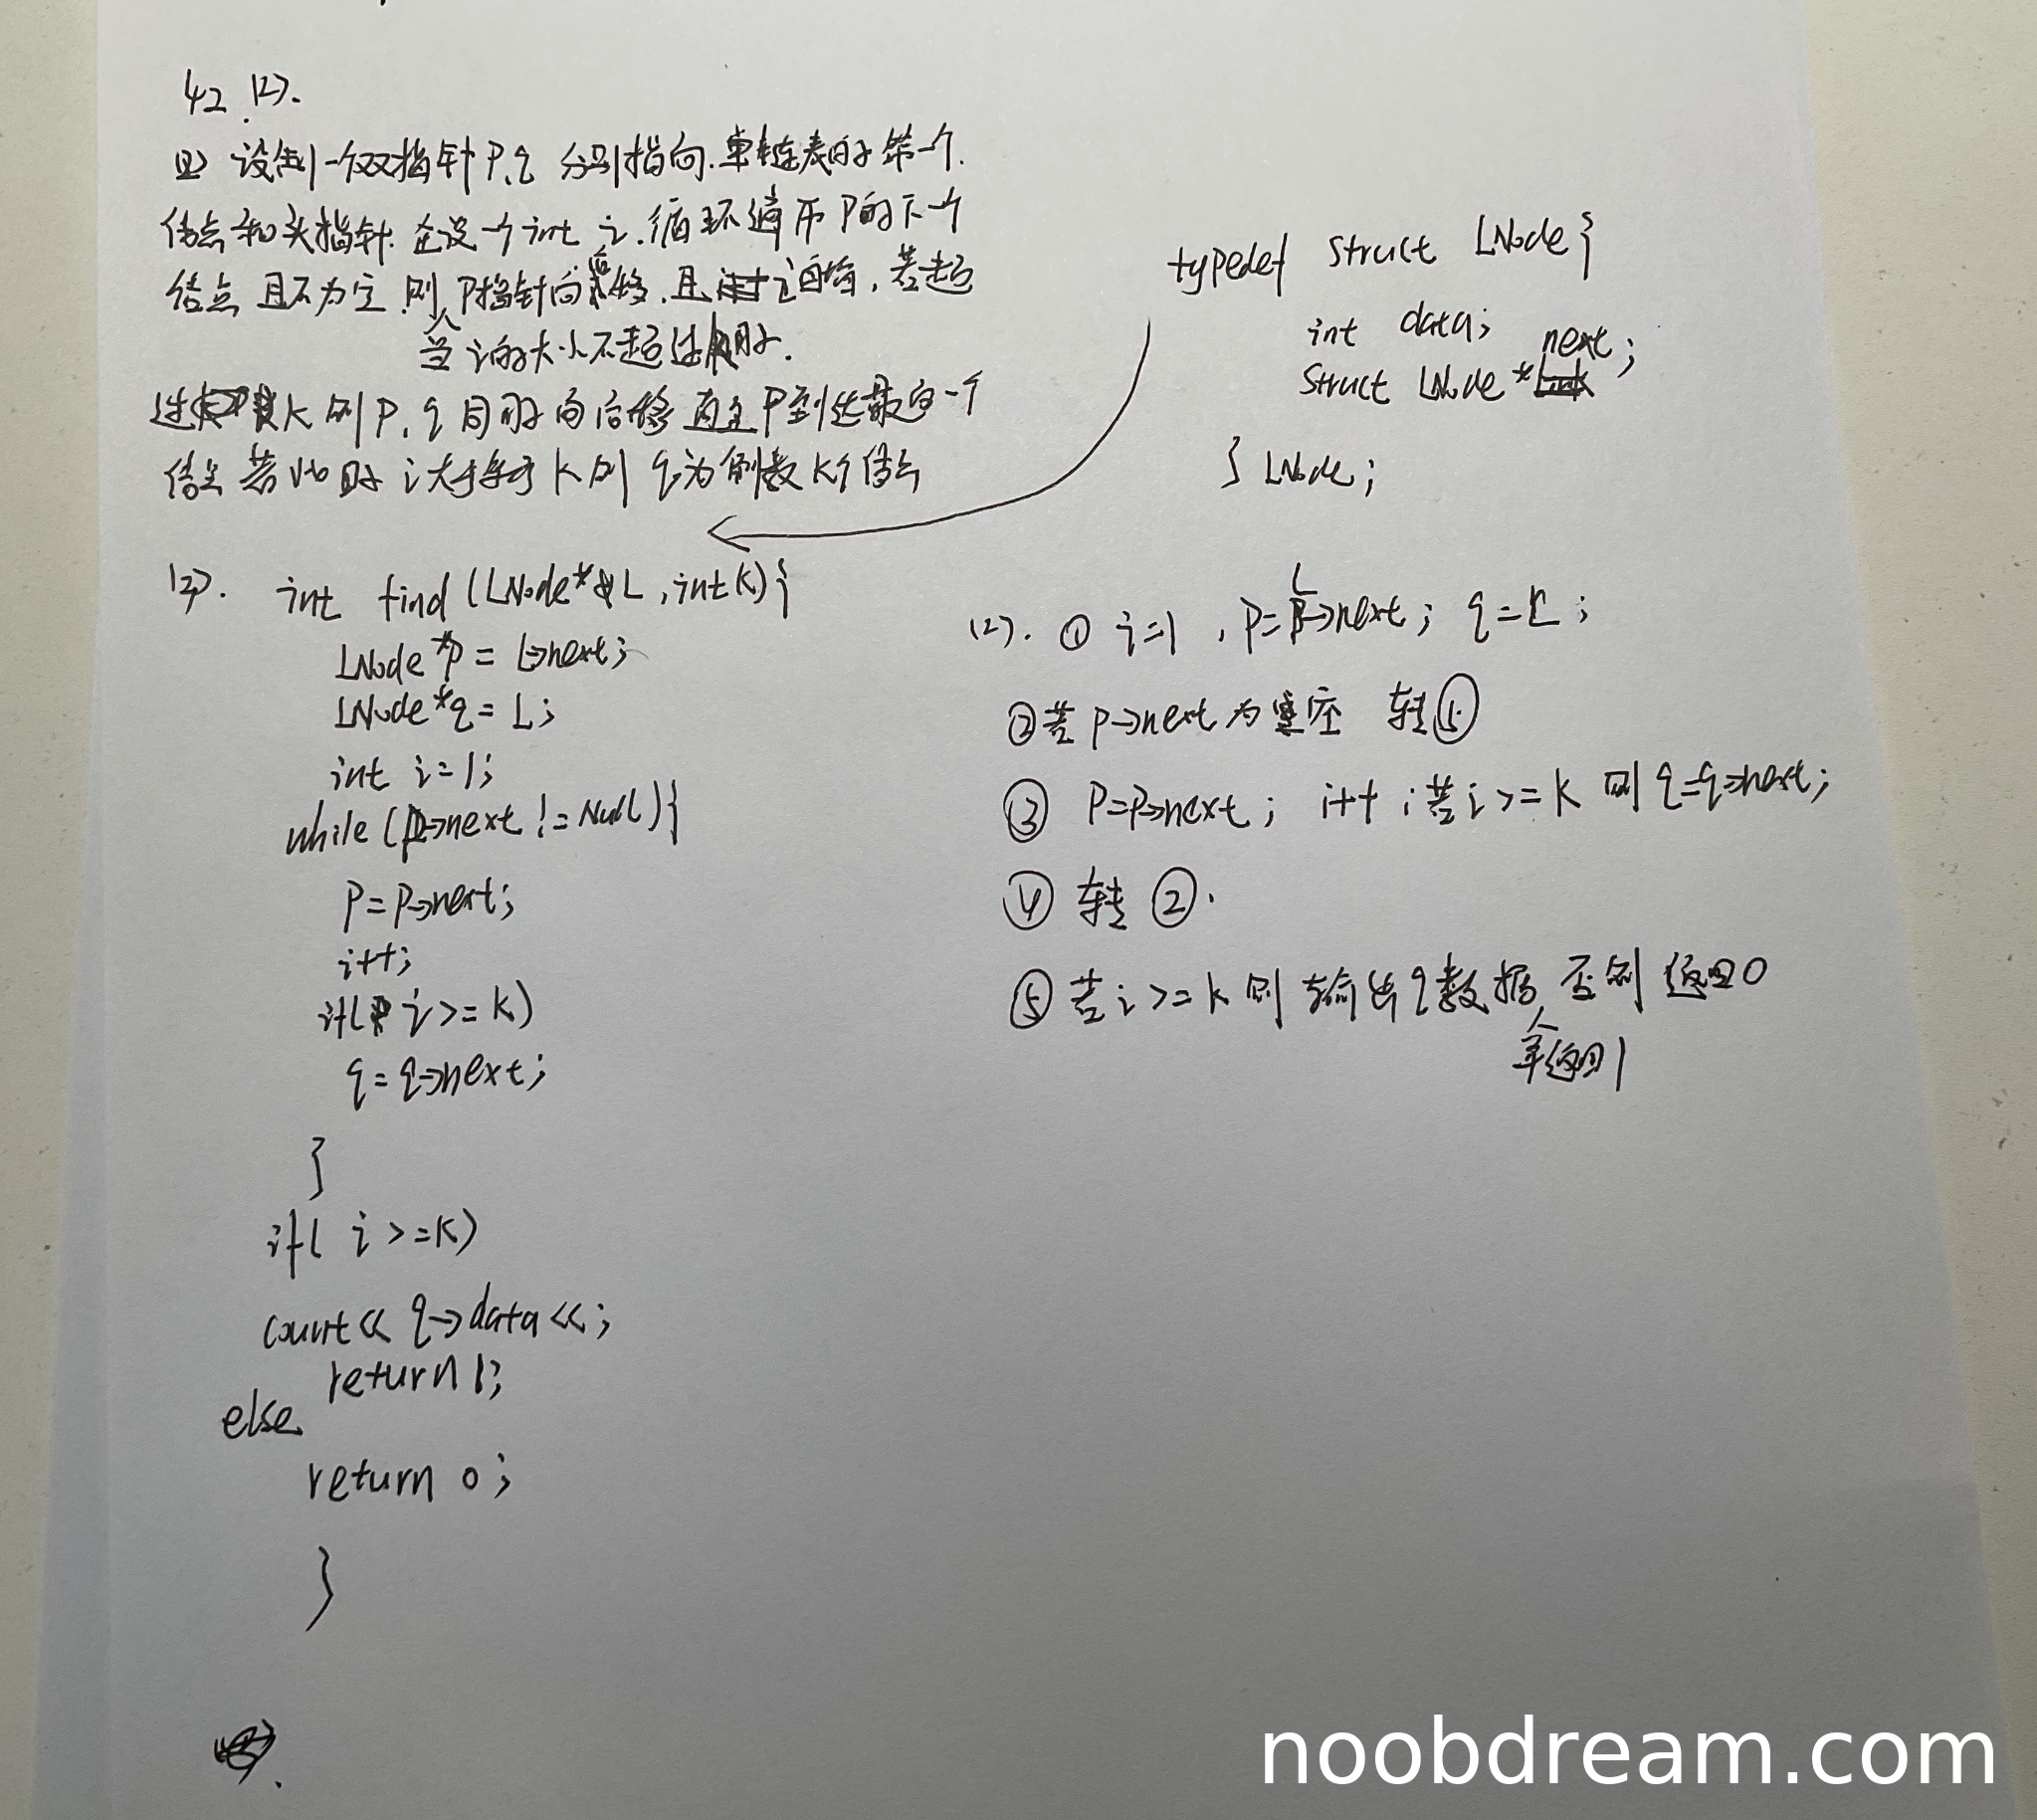 42 (2).
(1) 设制一个双指针 P、q 分别指向.单链表的第一个.
结点和头指针. 在设一个int i.循环遍历P的下一个
结点 且不为空.则 P指针向后移.且 i自增,若超
当i的大小不超过k时.
过 K 则P、q同时向后移 直至P到达最后一个
结点 若此时 i大于等于K则 q为倒数K个结点
typedef struct LNode{
int data;
struct LNode *next;
} LNode;
(3). int find (LNode*&L,int K){
LNode*p = L->next;
LNode*q = L;
int i=1;
while (p->next != Null){
P=P->next;
i++;
if( i >= K)
q = q->next;
}
if( i >=K)
count<< q->data<<;
return 1;
else
return 0;
}
(2). ① i=1 , P=L->next; q=L;
②若 P->next为空 转⑤
③ P=P->next; i++ ;若i>=K 则 q=q->next;
④ 转 ②.
⑤ 若 i>=K 则 输出q数据, 否则 返回0
并返回1
noobdream.com